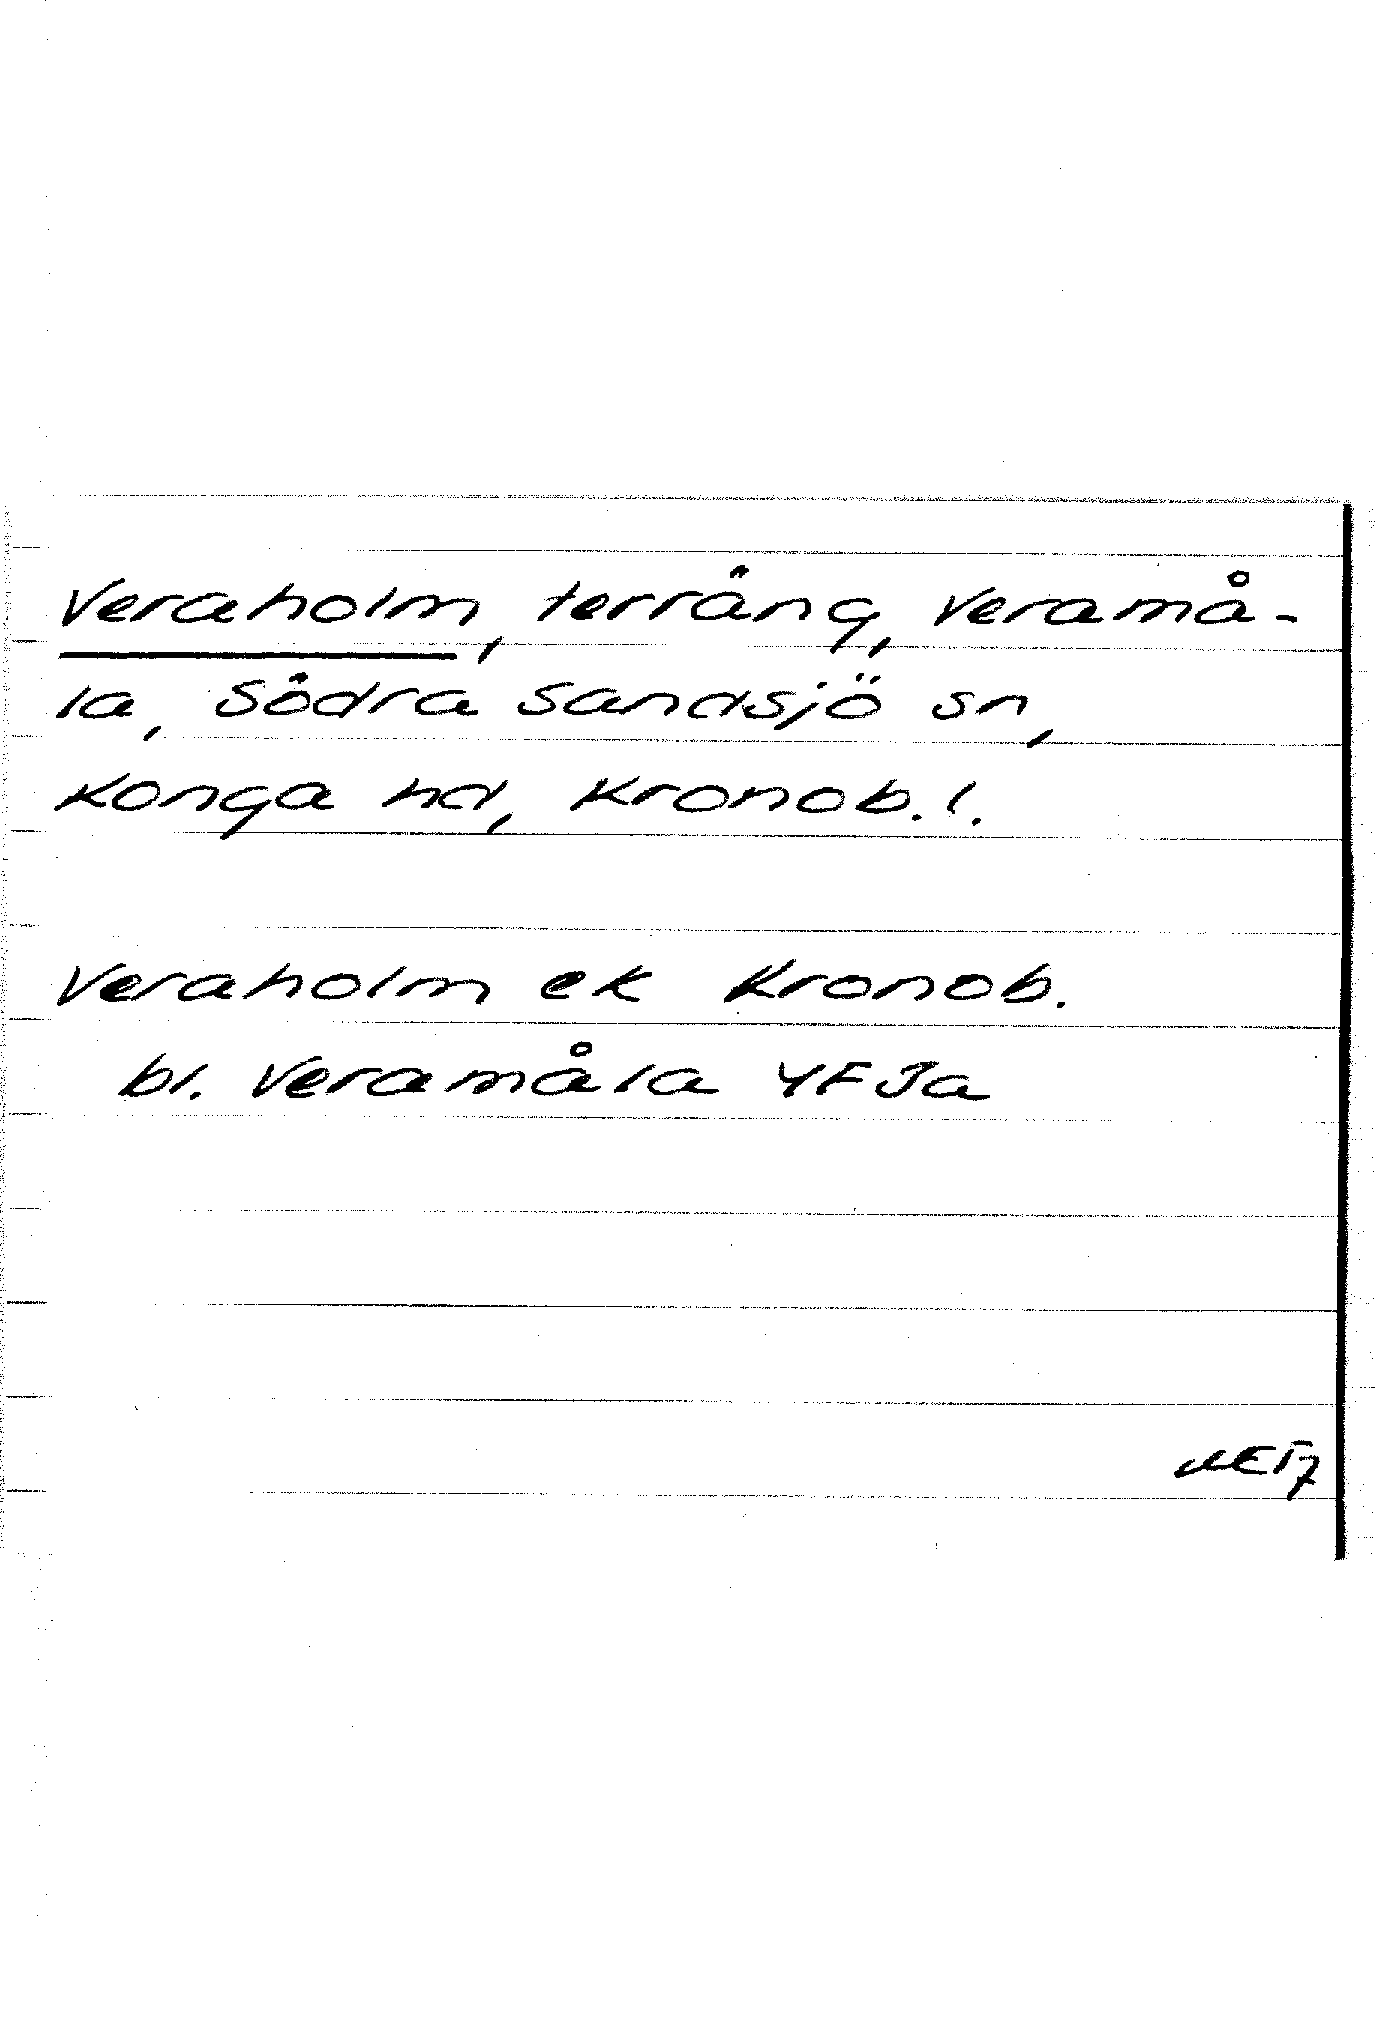 Veraholm, terräng, Veramå-
la, Södra Sandsjö sn,
Konga hd, Kronob. l.
Veraholm ek Kronob.
bl. Veramåla 4F Ja